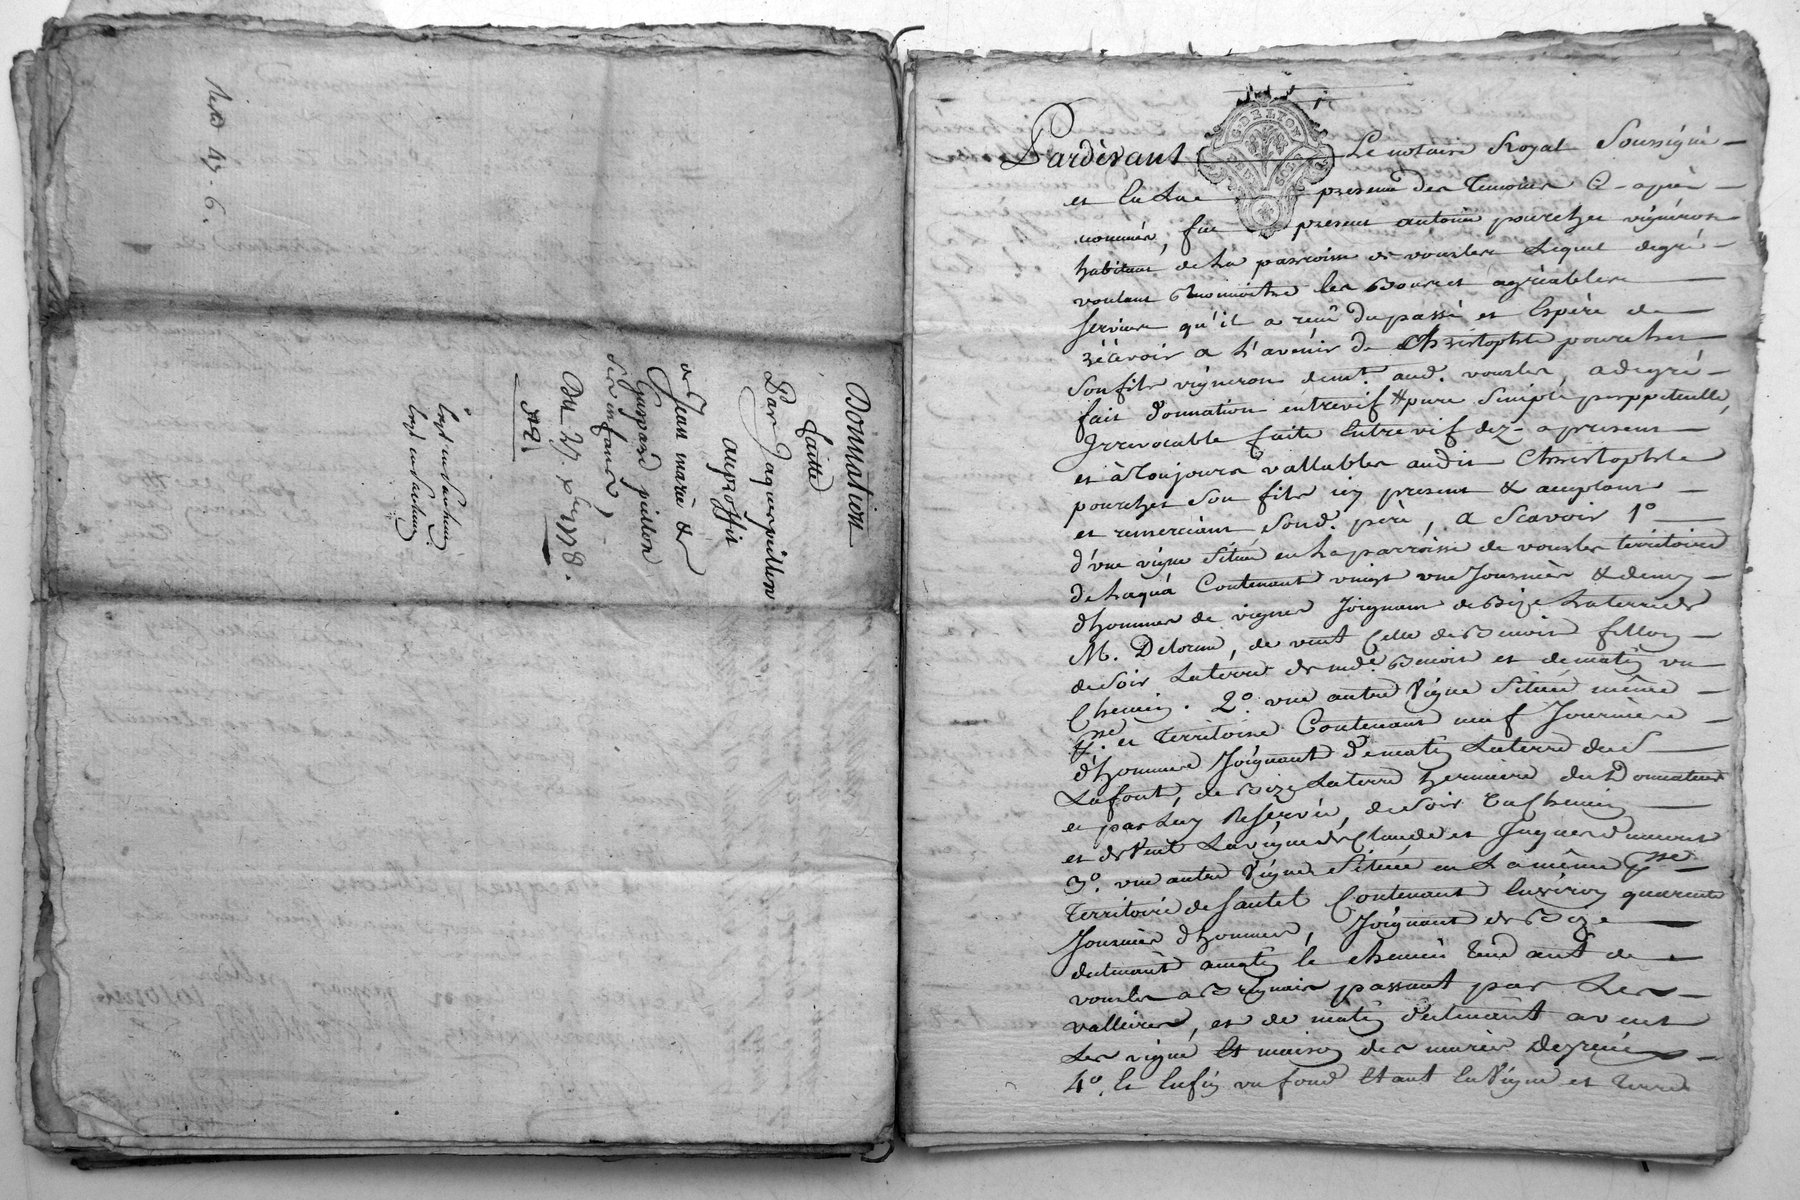 Donnation
faitte
Par Jaques peillon
auproffit
de Jean marie &
Guspard peillon
ses enfans
Du 27. xbre 1778.
Pardèvant Le notaire Royal Soussigné
et En La presence des temoins Cy-après
nommés, fut present antoine pourcher vigneron
habitant de La parroisse de vourles Lequel degré
voulant Reconnoitre les Bons et agréables
services qu'il a reçu du passé et Espère de
récévoir a L'avenir de Christophle pourcher
Son fils vigneron demt. aud. vourles, a degré
fait donnation entrevif pure Simple perppetuelle,
Irrevocable faite Entrevif dez-apresent
et àtoujours vallables audit Christophle
pourcher Son fils icy present & acceptant
et remerciant Sond. père, A Scavoir 1o
d'une vigne Située en La parroisse de vourles territoire
de Contenant vingt une Journées & demy
d'hommes de vignes Joignant de Bize La terre de
M. Delorme, de vent Celle de Benoit fillon
de Soir La terre de Benoit et de matin un
Chemin. 2o. une autre Vigne Située même
Psse. et Territoire Contenant neuf Journées
d'hommes Joignant de matin La terre du S
Lafont, de Bize La terre hermière du Donnateur
et par Luy Reservée, de Soir Ce Chemin
et de Vent La vigne de Claude et Jaques
3o. une autre Vigne Située en La même Psse
Territoire de Sautel Contenant Environ quarente
Journées d'hommes, Joignant de Bize
declinant a matin le chemin tendant de
vourles a Brignais passant par Les
vallieres, et de matin declinant a vent
Les vigne et maison des mariés
4o. et Enfin un fond Etant En Vigne et terre